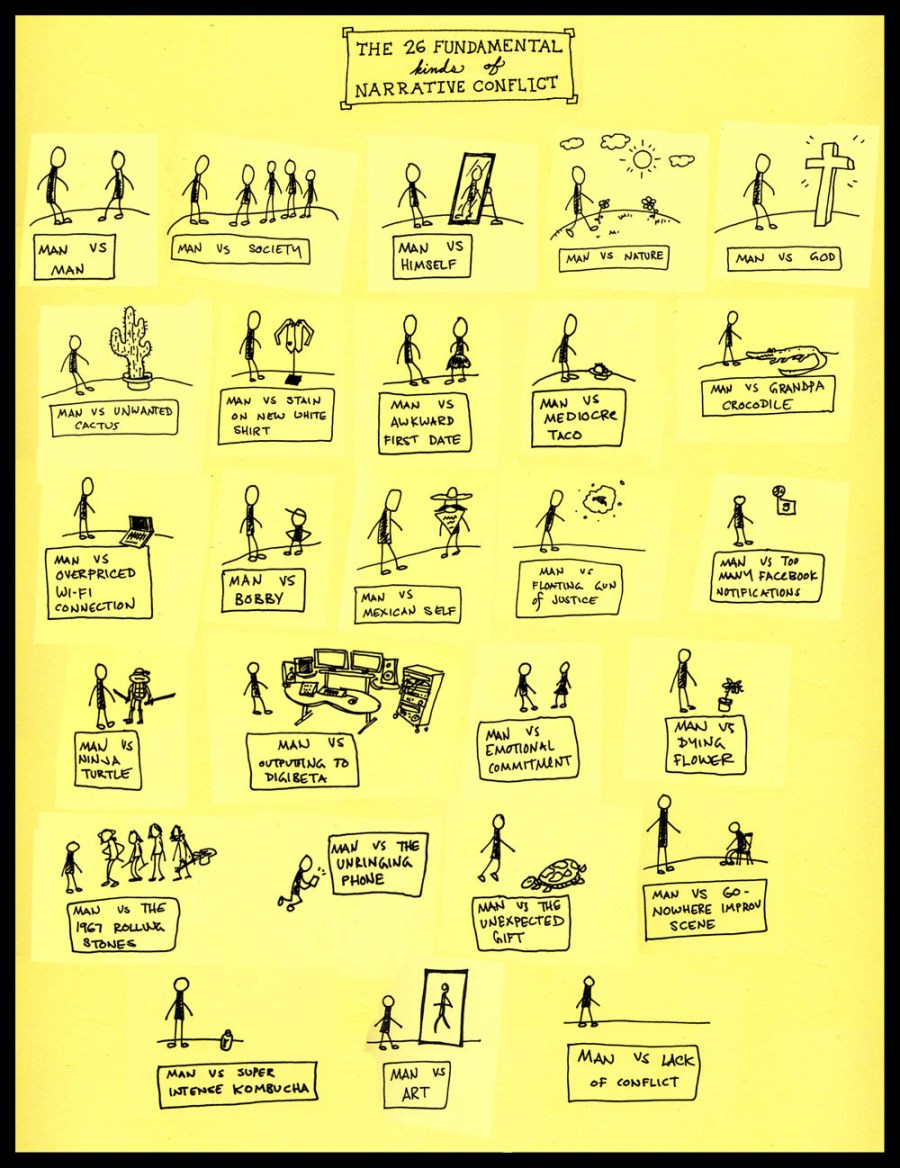 THE 26 FUNDAMENTAL
kinds of
NARRATIVE CONFLICT
MAN VS
MAN
MAN VS SOCIETY
MAN VS
HIMSELF
MAN VS NATURE
MAN VS GOD
MAN VS UNWANTED
CACTUS
MAN VS STAIN
ON NEW WHITE
SHIRT
MAN VS
AWKWARD
FIRST DATE
MAN VS
MEDIOCRE
TACO
MAN VS GRANDPA
CROCODILE
MAN VS
OVERPRICED
WI-FI
CONNECTION
MAN VS
BOBBY
MAN VS
MEXICAN SELF
MAN VS
FLOATING GUN
of JUSTICE
MAN VS TOO
MANY FACEBOOK
NOTIFICATIONS
MAN VS
NINJA
TURTLE
MAN VS
OUTPUTTING TO
DIGIBETA
MAN VS
EMOTIONAL
COMMITMENT
MAN VS
DYING
FLOWER
MAN VS THE
1967 ROLLING
STONES
MAN VS THE
UNRINGING
PHONE
MAN VS THE
UNEXPECTED
GIFT
MAN VS GO-
NOWHERE IMPROV
SCENE
MAN VS SUPER
INTENSE KOMBUCHA
MAN VS
ART
MAN VS LACK
OF CONFLICT